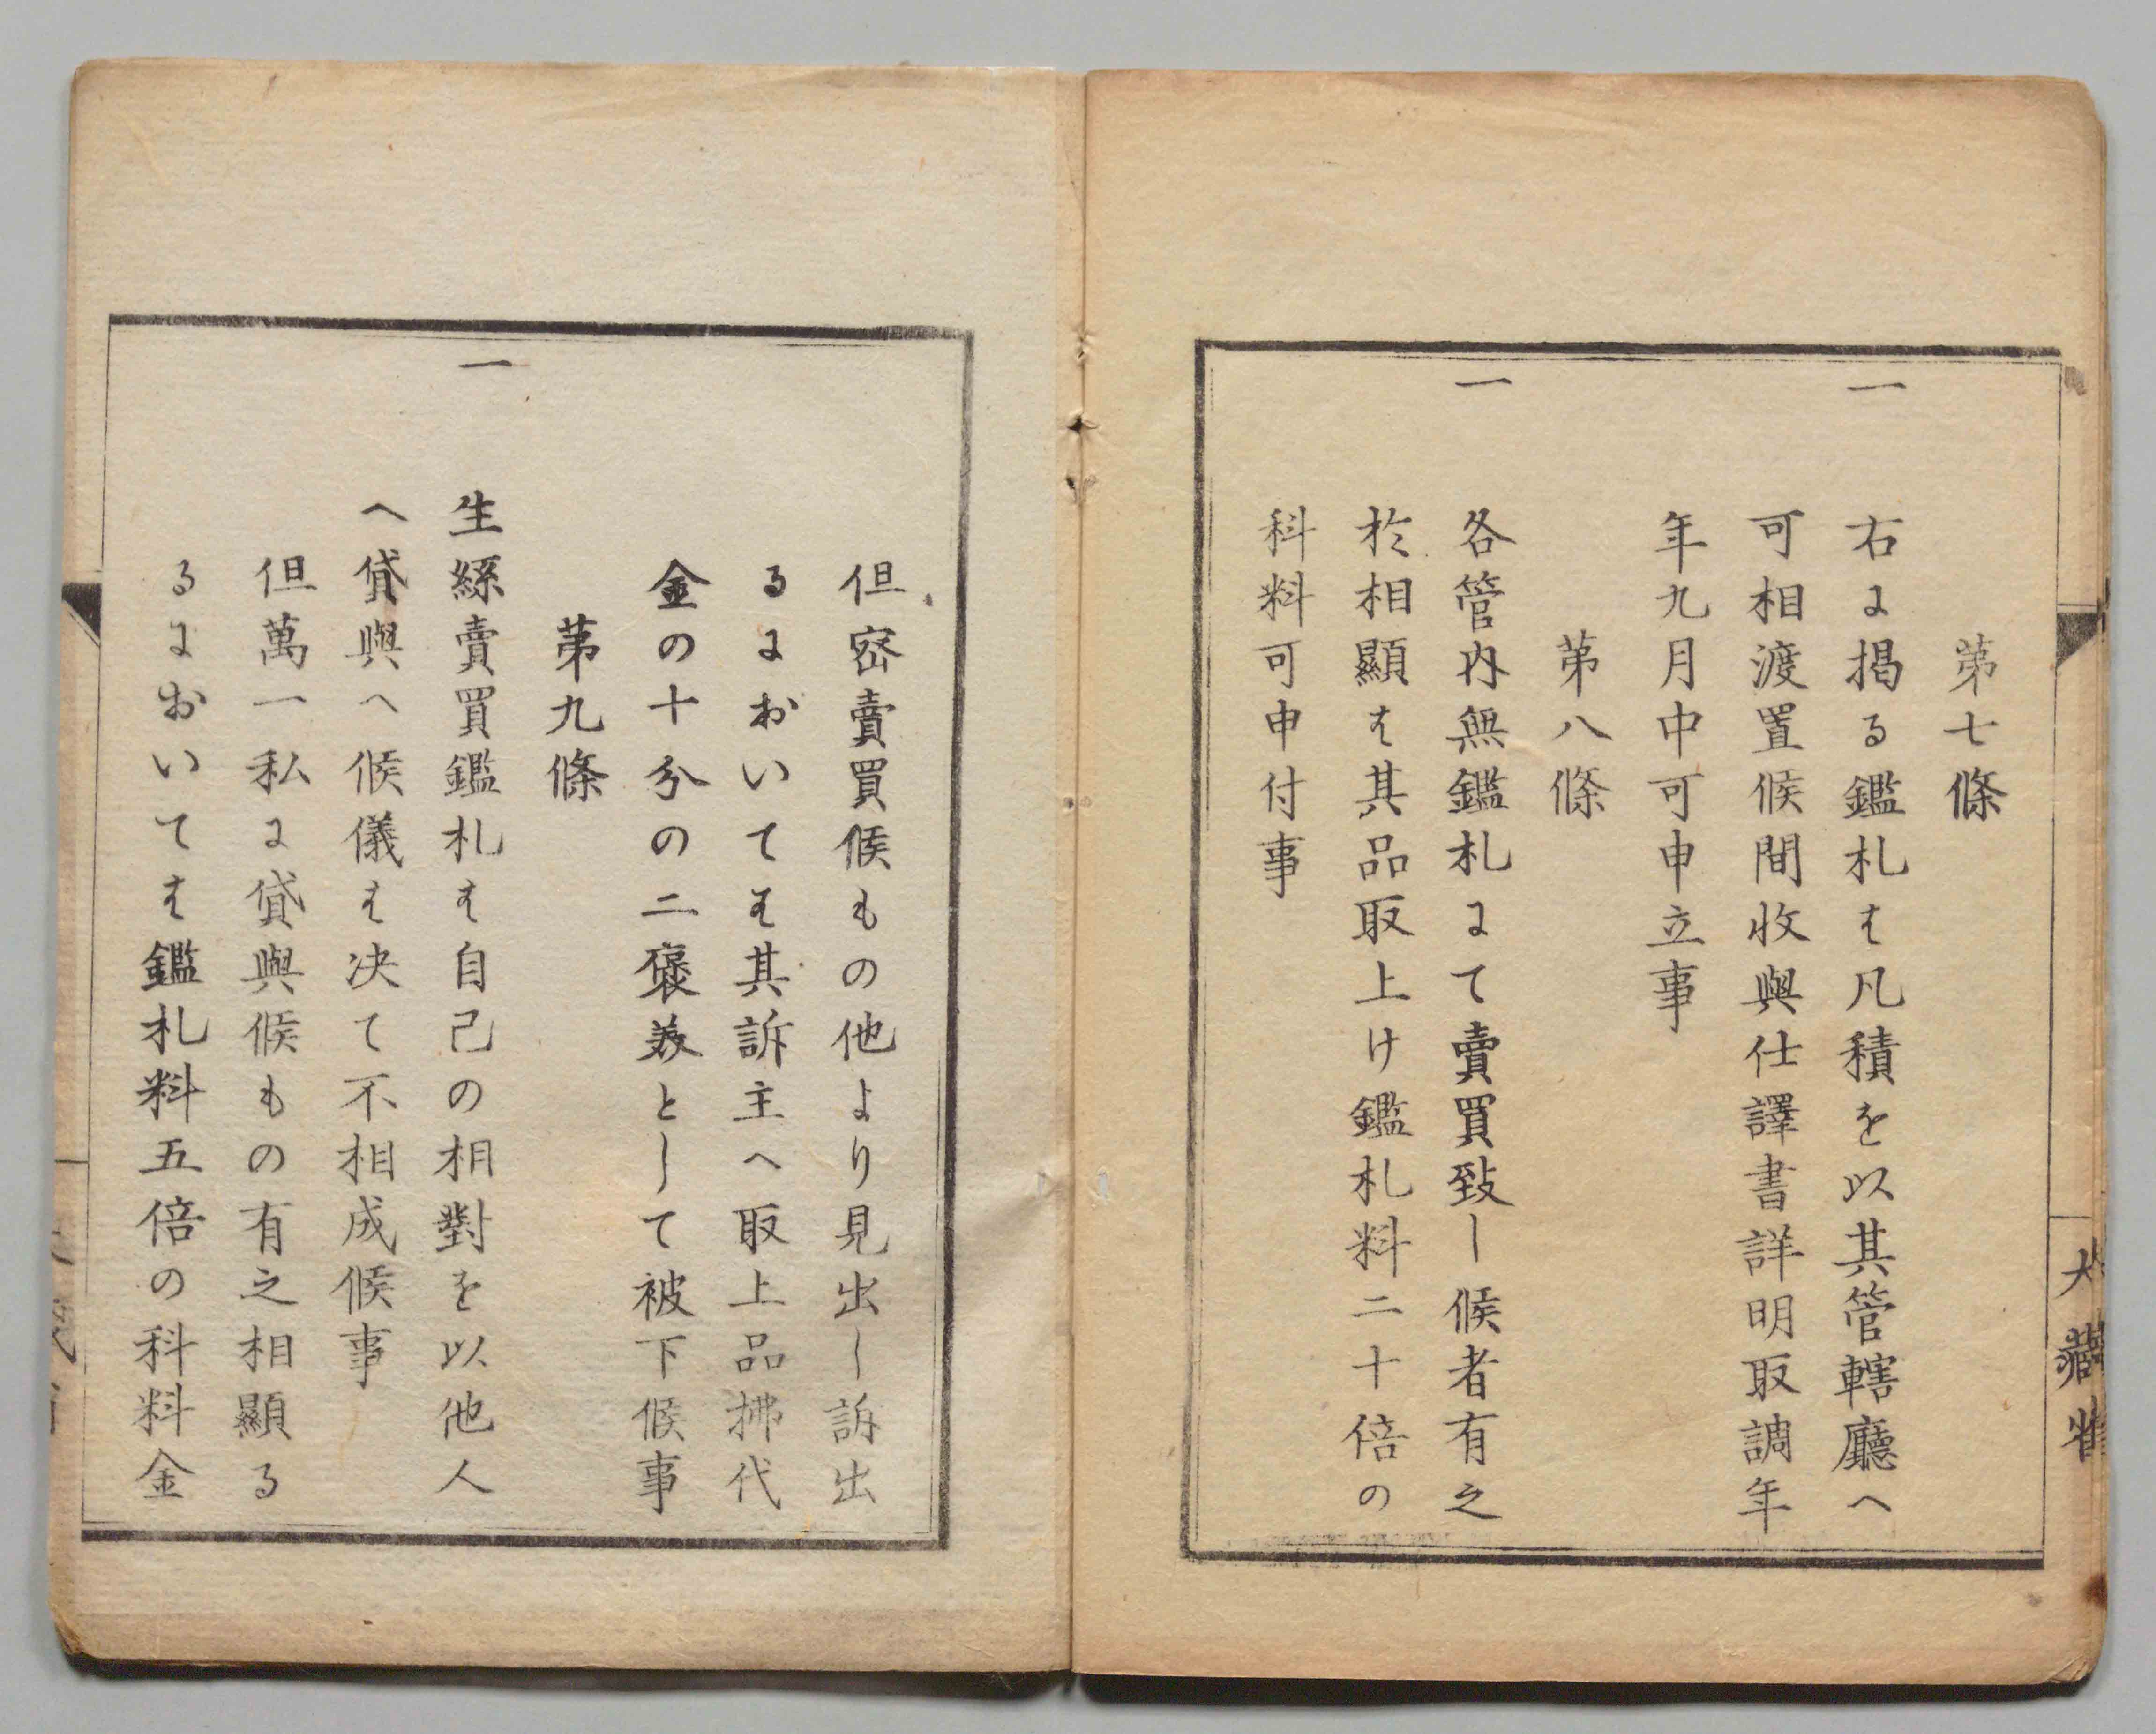 第七條
一 右に掲る鑑札は凡積を以其管轄廳へ
可相渡置候間收與仕譯書詳明取調年
年九月中可申立事
第八條
一 各管内無鑑札にて賣買致し候者有之
於相顯は其品取上け鑑札料二十倍の
科料可申付事
大藏省
但密賣買候もの他より見出し訴出
るにおいては其訴主へ取上品拂代
金の十分の二褒美として被下候事
第九條
一 生絲賣買鑑札は自己の相對を以他人
へ貸與へ候儀は决て不相成候事
但萬一私に貸與候もの有之相顯る
るにおいては鑑札料五倍の科料金